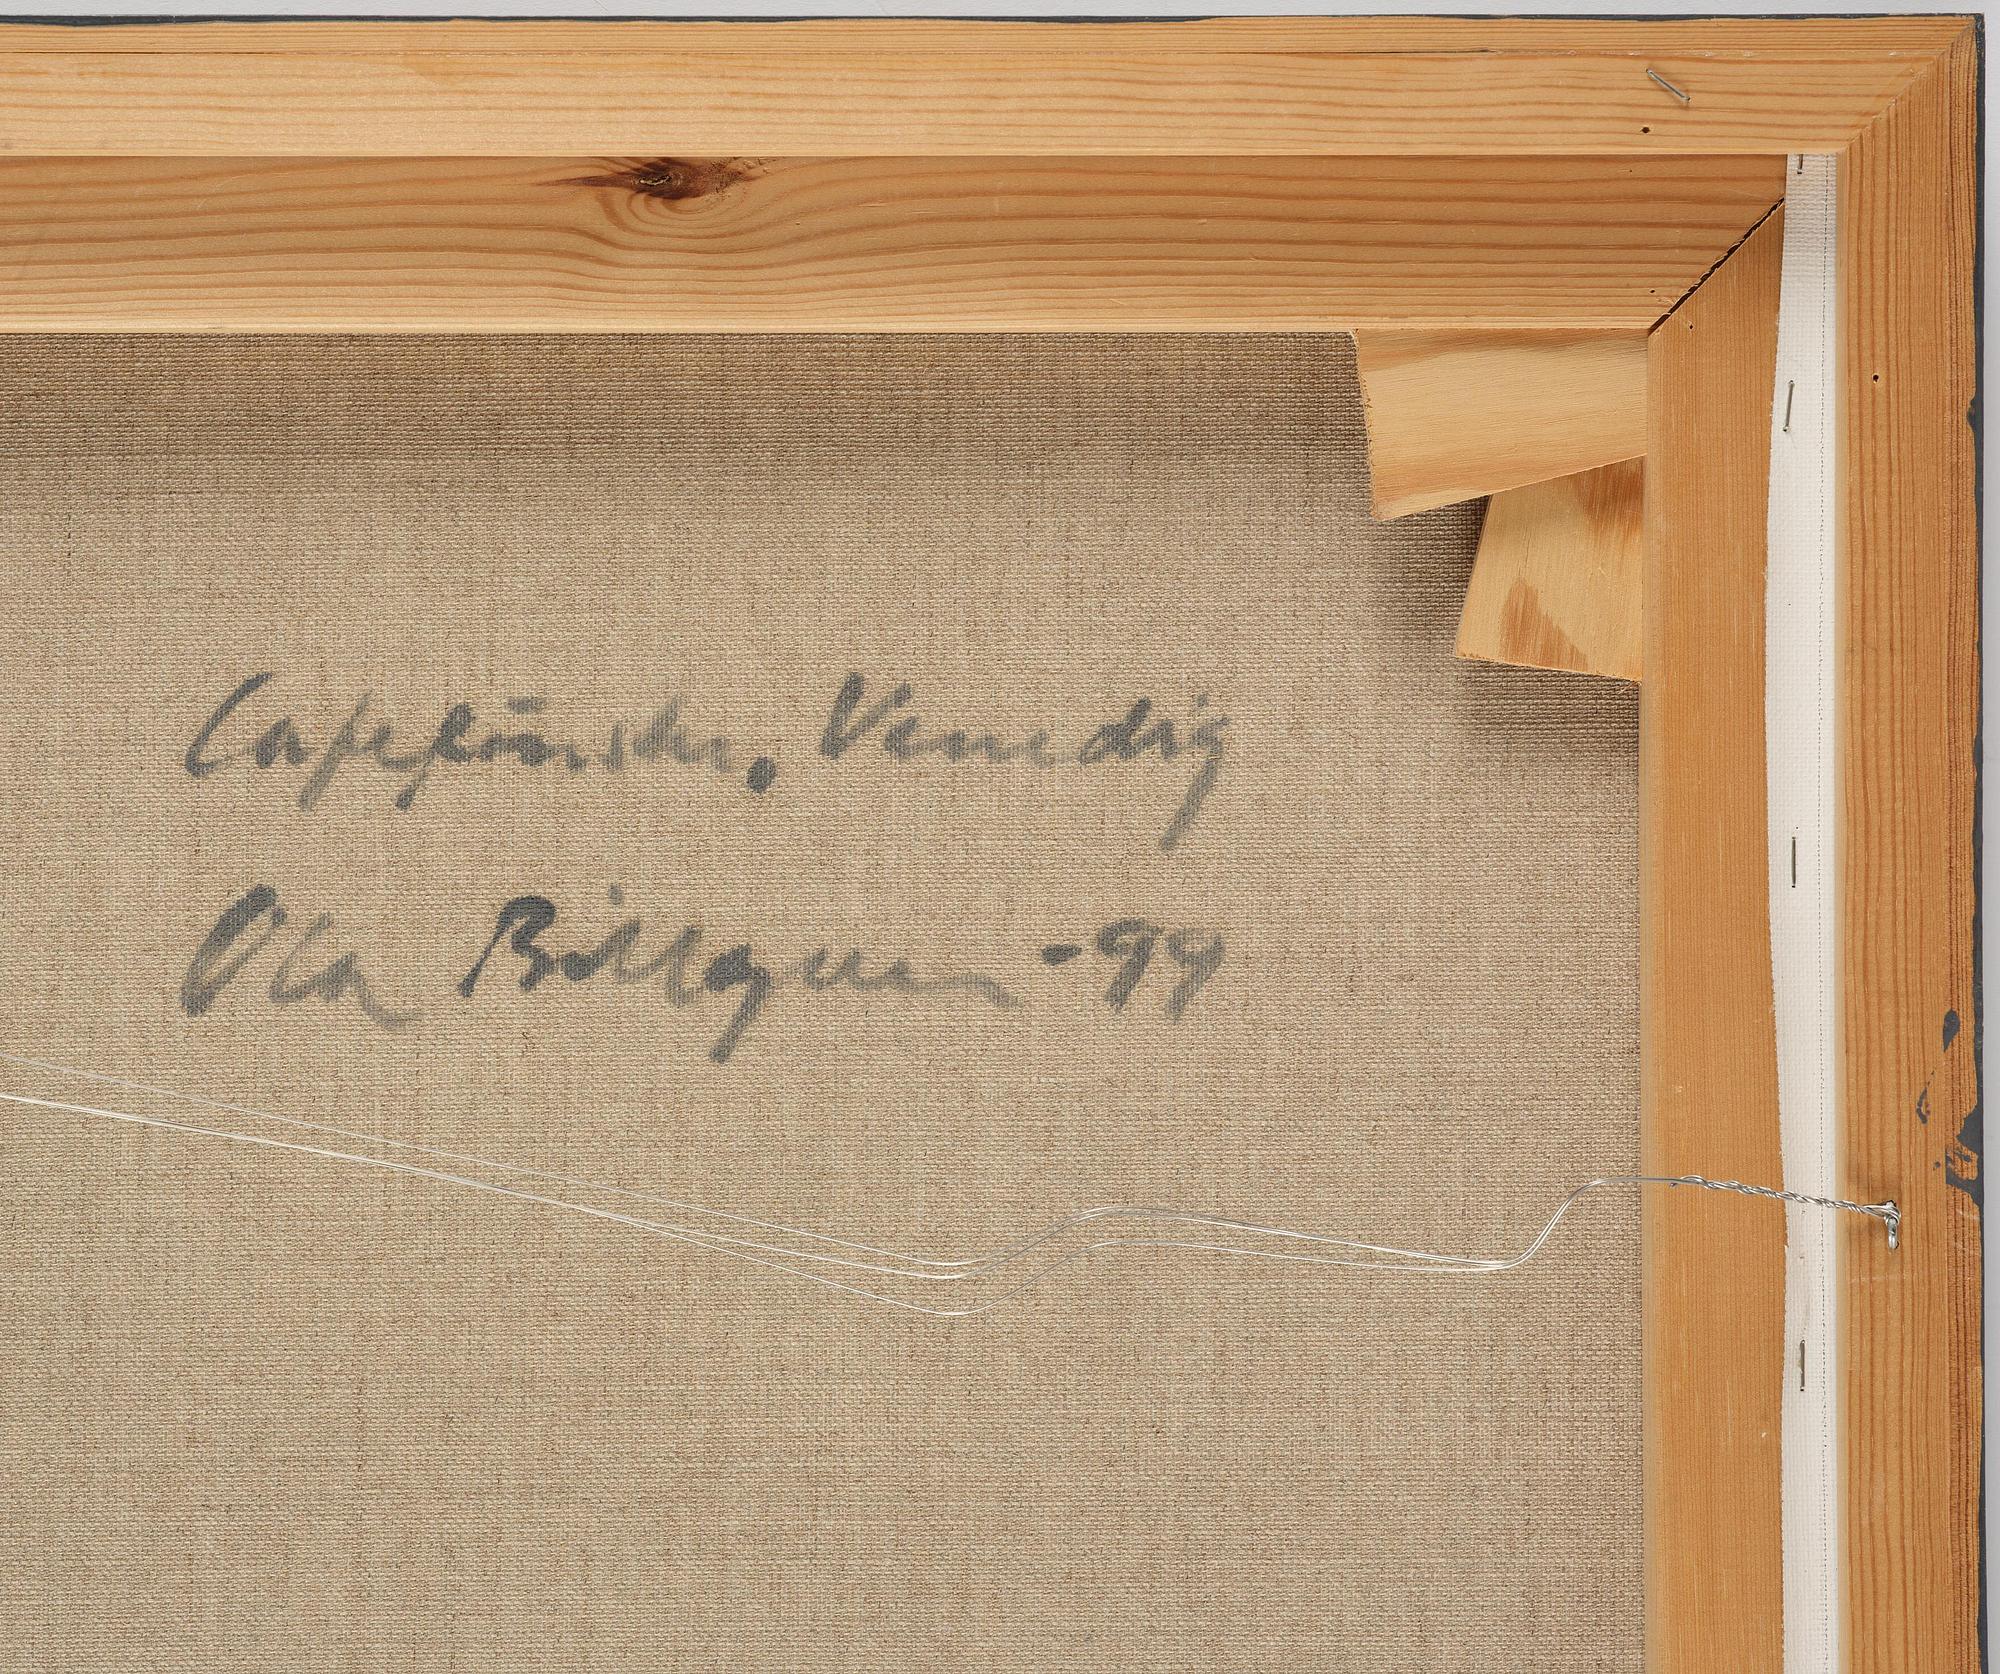 Caféfönster, Venedig
Ola Billgren -99